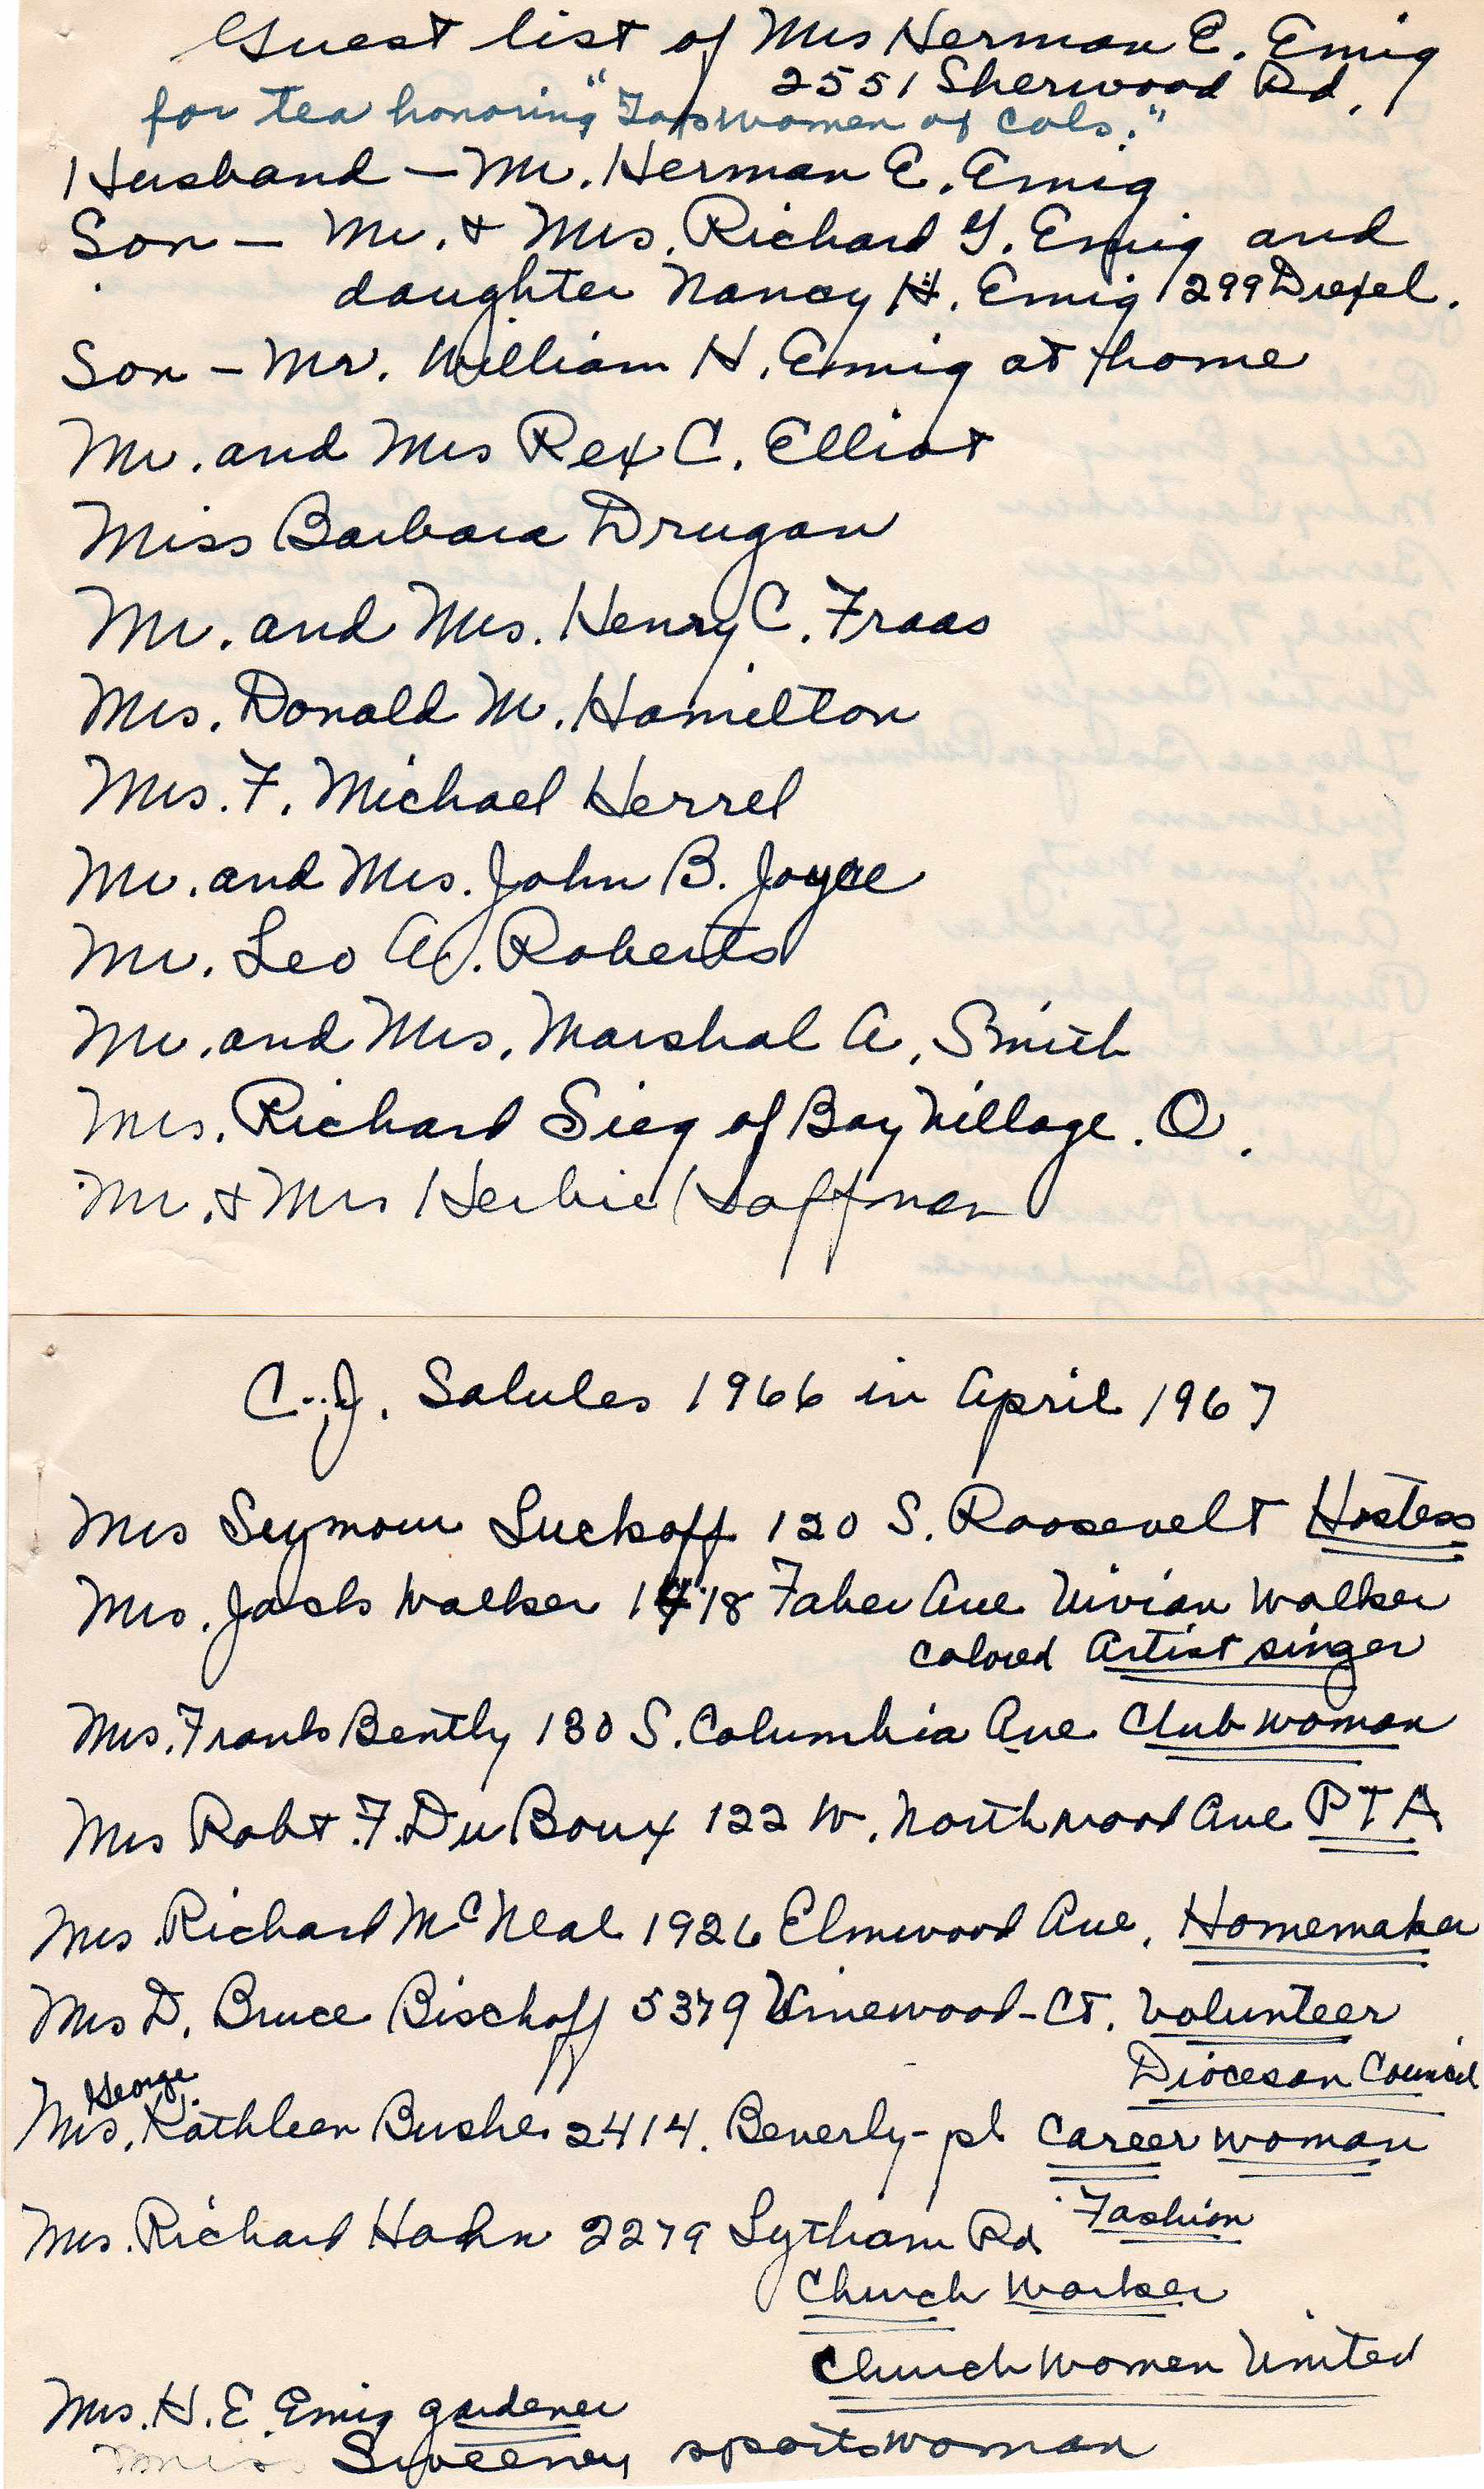 Guest list of Mrs Herman E. Emig
2551 Sherwood Rd.
for tea honoring "Top women of Cols."
Husband — Mr. Herman E. Emig
Son — Mr. & Mrs. Richard G. Emig and
daughter Nancy H. Emig 299 Drexel.
Son — Mr. William H. Emig at home
Mr. and Mrs Rex C. Elliot
Miss Barbara Drugan
Mr. and Mrs. Henry C. Fraas
Mrs. Donald M. Hamilton
Mrs. F. Michael Herrel
Mr. and Mrs. John B. Joyce
Mr. Leo A. Roberts
Mr. and Mrs. Marshal A. Smith
Mrs. Richard Sieg of Bay Village. O.
Mr. & Mrs Herbie Hoffman
C.J. Salutes 1966 in April 1967
Mrs Seymour Luckoff 120 S. Roosevelt Hostess
Mrs. Jack Walker 1418 Faber Ave Vivian Walker
colored Artist singer
Mrs. Frank Bently 130 S. Columbia Ave Club woman
Mrs Robt. F. Du Boux 122 W. Northwood Ave PTA
Mrs Richard McNeal 1926 Elmwood Ave, Homemaker
Mrs D. Bruce Bischoff 5379 Vinewood-Ct. Volunteer
Diocesan Council
George
Mrs. Kathleen Bushe 2414. Beverly-pl Career woman
Fashion
Mrs. Richard Hahn 2279 Lytham Rd
Church Worker
Church Women United
Mrs. H. E. Emig gardener
Miss Sweeney sports woman